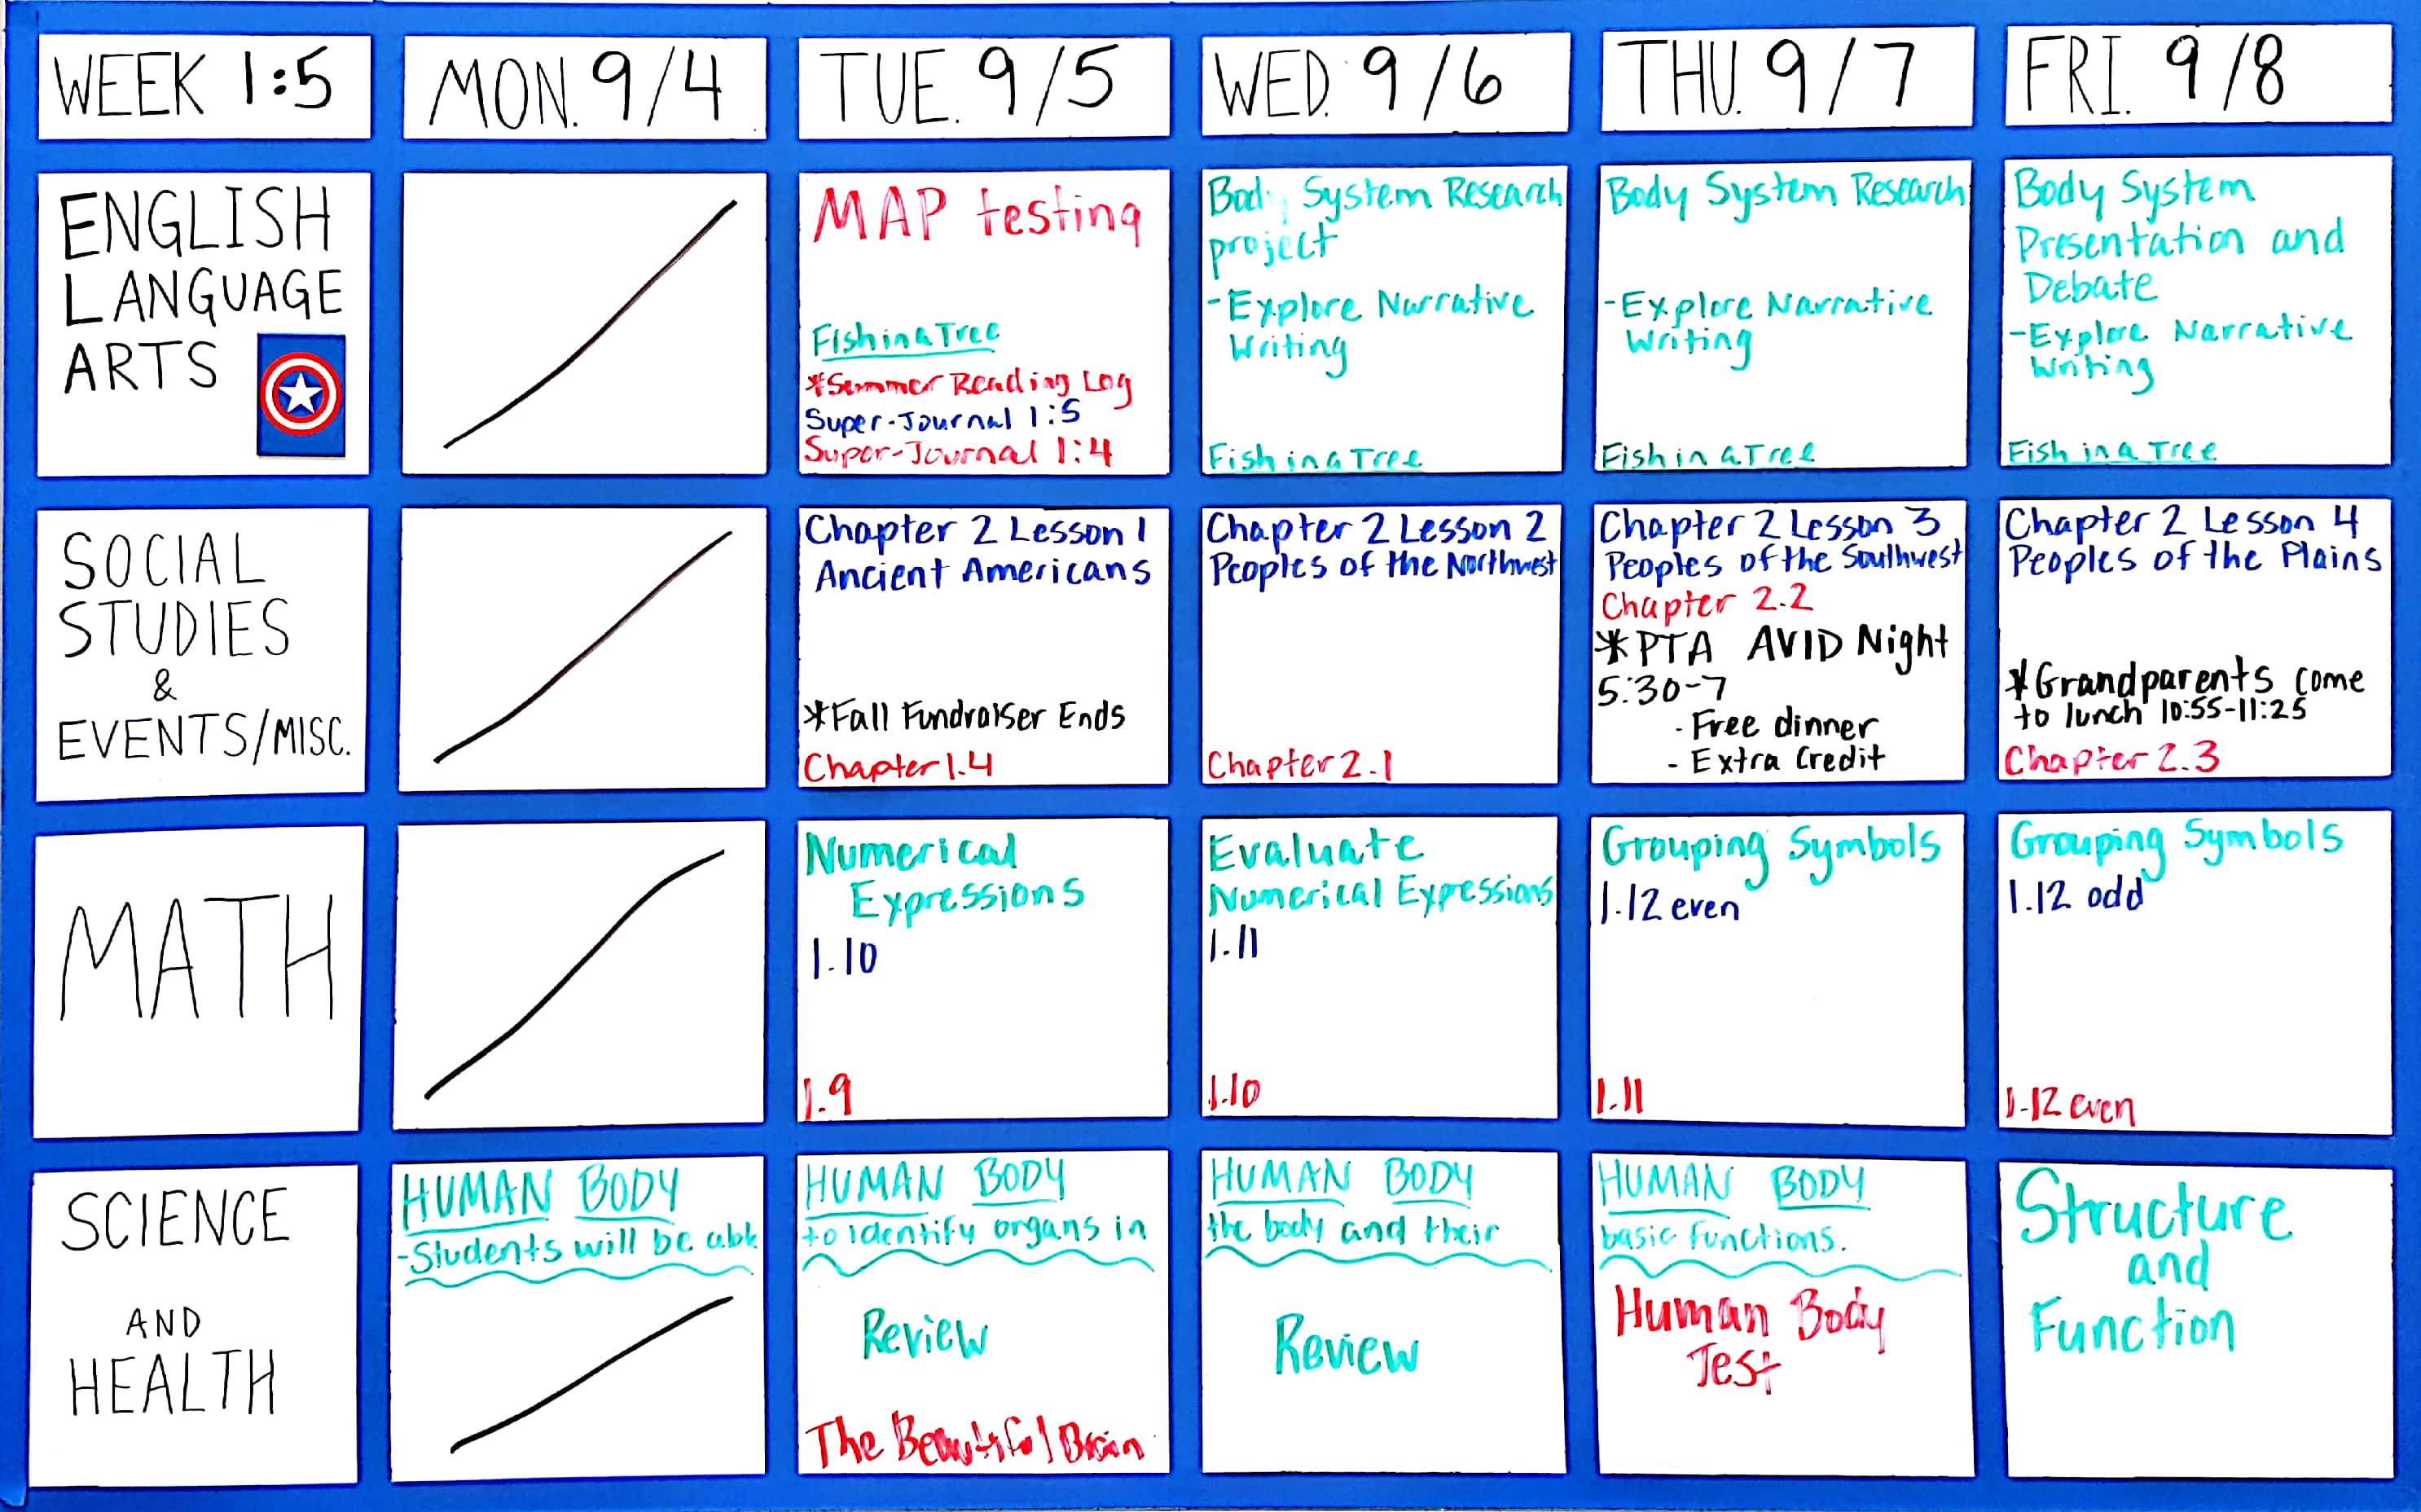 WEEK 1:5
MON. 9/4
TUE. 9/5
WED. 9/6
THU. 9/7
FRI. 9/8
ENGLISH
LANGUAGE
ARTS
MAP testing
Fish in a Tree
*Summer Reading Log
Super-Journal 1:5
Super-Journal 1:4
Body System Research
project
-Explore Narrative
Writing
Fish in a Tree
Body System Research
-Explore Narrative
Writing
Fish in a Tree
Body System
Presentation and
Debate
-Explore Narrative
Writing
Fish in a Tree
SOCIAL
STUDIES
&
EVENTS/MISC.
Chapter 2 Lesson 1
Ancient Americans
*Fall Fundraiser Ends
Chapter 1.4
Chapter 2 Lesson 2
Peoples of the Northwest
Chapter 2.1
Chapter 2 Lesson 3
Peoples of the Southwest
Chapter 2.2
*PTA AVID Night
5:30-7
- Free dinner
- Extra Credit
Chapter 2 Lesson 4
Peoples of the Plains
*Grandparents come
to lunch 10:55-11:25
Chapter 2.3
MATH
Numerical
Expressions
1.10
1.9
Evaluate
Numerical Expressions
1.11
1.10
Grouping Symbols
1.12 even
1.11
Grouping Symbols
1.12 odd
1.12 even
SCIENCE
AND
HEALTH
HUMAN BODY
-Students will be able
HUMAN BODY
to identify organs in
Review
The Beautiful Brain
HUMAN BODY
the body and their
Review
HUMAN BODY
basic functions.
Human Body
Test
Structure
and
Function